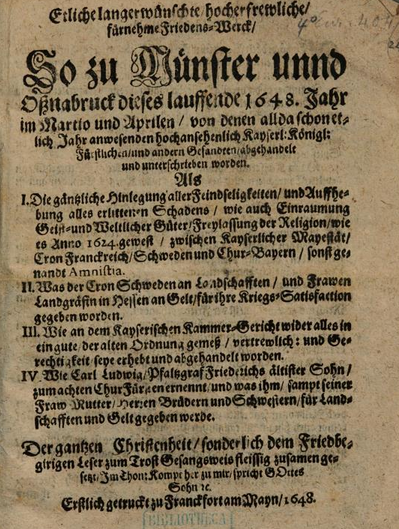 Etliche langerwünschte/hocherfrewliche/
fürnehme Friedens-Werck/
So zu Münster unnd
Oßnabruck dieses lauffende 1648. Jahr
im Martio und Aprilen/ von denen allda schon et-
lich Jahr anwesenden hochansehenlich Kayserl: Königl:
Fürstlichen/und andern Gesandten/abgehandelt
und unterschrieben worden.
Als
I. Die gäntzliche Hinlegung aller Feindseligkeiten/und Auffhe-
bung alles erlittenen Schadens/ wie auch Einraumung
Geist- und Weltlicher Güter/Freylassung der Religion/wie
es Anno 1624. gewest/ zwischen Kayserlicher Mayestät/
Cron Franckreich/Schweden und Chur-Bayern/ sonst ge-
nandt Amnistia.
II. Was der Cron Schweden an Landschafften/ und Frawen
Landgräfin in Hessen an Gelt/für ihre Kriegs-Satisfaction
gegeben worden.
III. Wie an dem Kayserischen Kammer-Gericht wider alles in
ein gute/der alten Ordnung gemeß/ vertrewlich: und Ge-
rechtigkeit seye erhebt und abgehandelt worden.
IV. Wie Carl Ludwig/Pfaltzgraf Friederichs ältister Sohn/
zum achten Chur Fürsten ernennt/und was ihm/ sampt seiner
Fraw Mutter/Herren Brüdern und Schwestern/für Land-
schafften und Gelt gegeben werde.
Der gantzen Christenheit/ sonderlich dem Friedbe-
girigen Leser zum Trost Gesangsweis fleissig zusamen ge-
setzt/Im Thon: Kompt her zu mir/spricht GOttes
Sohn ꝛc.
Erstlich getruckt zu Franckfort am Mayn/1648.